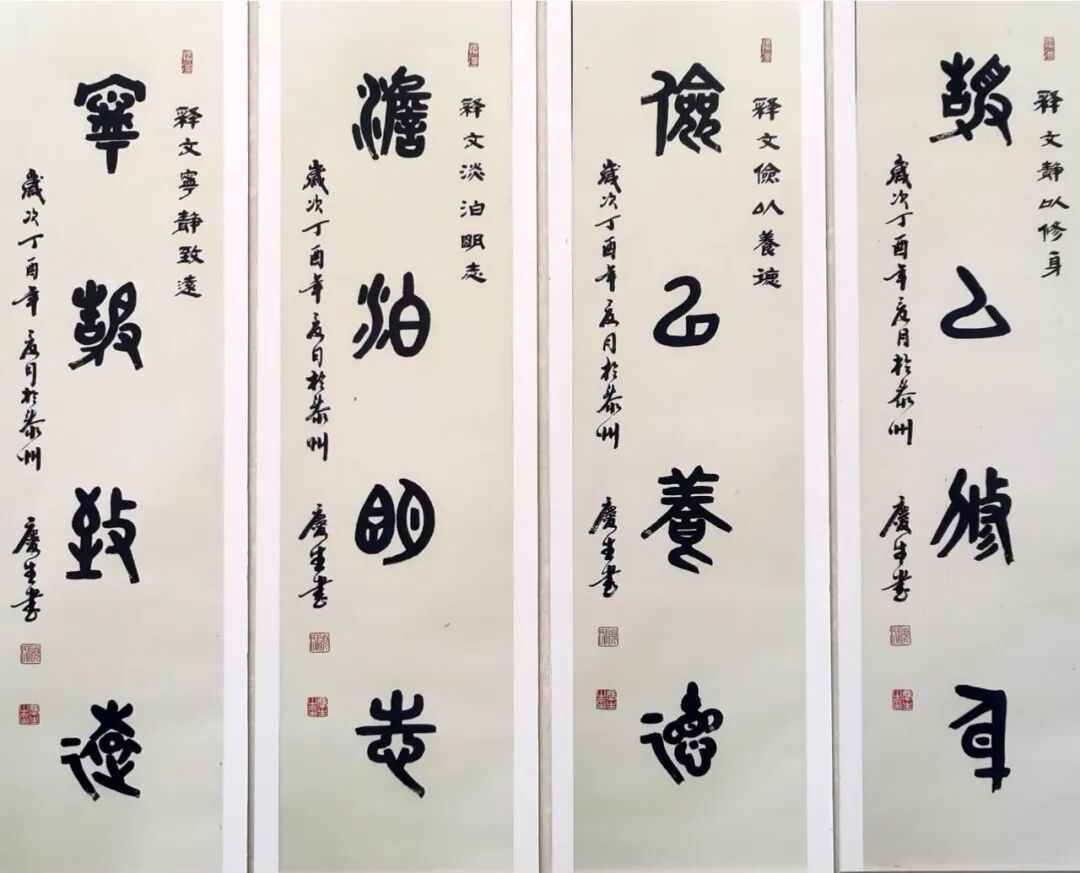 释文静以修身
静以修身
歲次丁酉年夏月於泰州
慶生書
释文儉以養德
儉以養德
歲次丁酉年夏月於泰州
慶生書
释文淡泊明志
澹泊明志
歲次丁酉年夏月於泰州
慶生書
释文寧静致遠
寧静致遠
歲次丁酉年夏月於泰州
慶生書